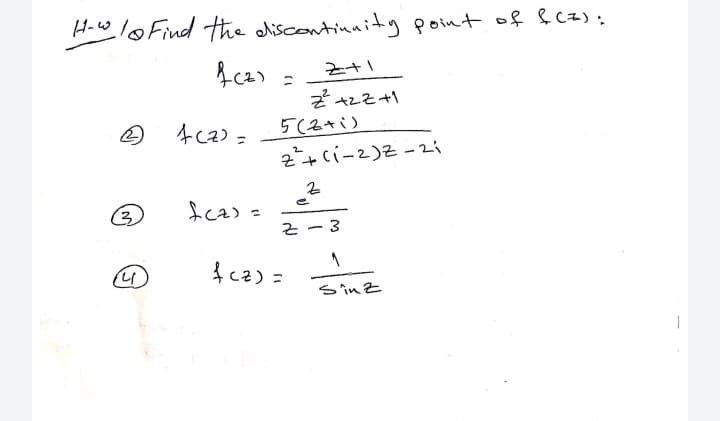 H-w 1@ Find the discontinuity point of f(z):
f(z) = z+1 / z² +2z+1
② f(z) = 5(z+i) / z²+(i-2)z-2i
③ f(z) = e^z / z-3
④ f(z) = 1 / sinz